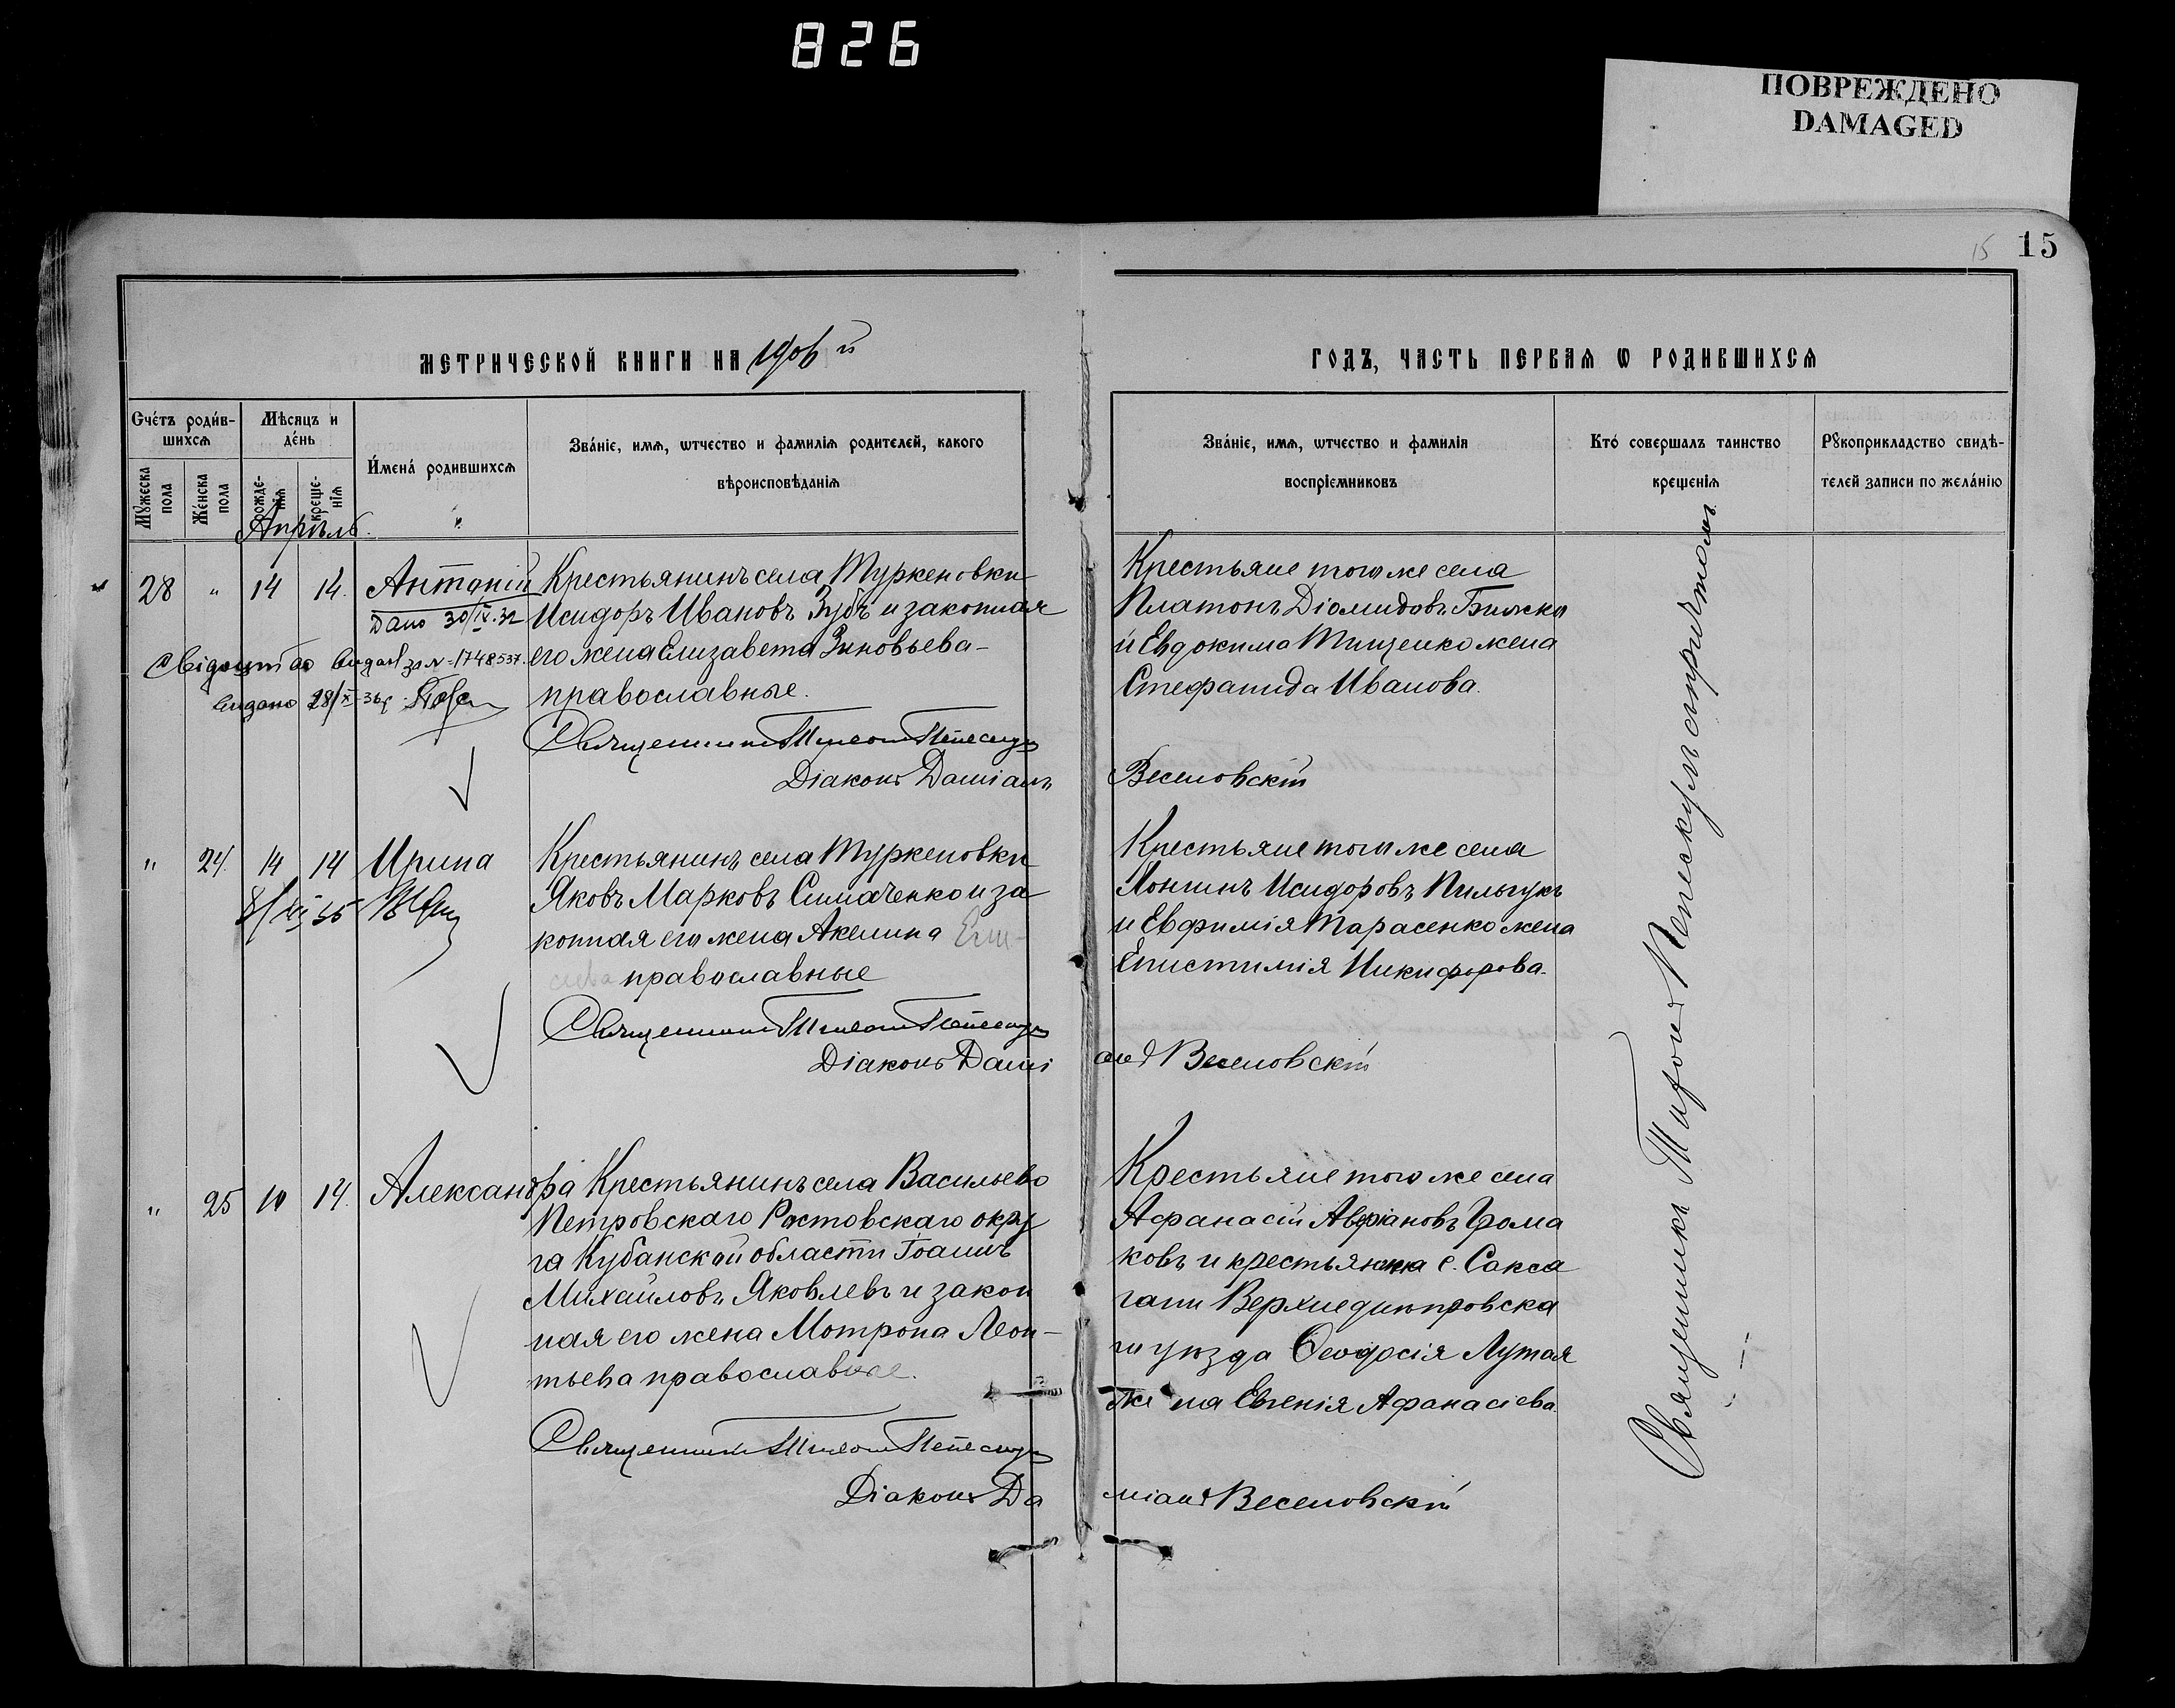 826
ПОВРЕЖДЕНО
DAMAGED
15 15
МЕТРИЧЕСКОЙ КНИГИ НА 1906 й
ГОДЪ, ЧАСТЬ ПЕРВАЯ Ѡ РОДИВШИХСѦ
Счётъ родив-
шихсѧ
Мꙋжеска пола
Женска пола
Мѣсяцъ и
день
рожде-
нія
креще-
нія
Имена родившихсѧ
Званіе, имѧ, ѡтчество и фамилія родителей, какого
вѣроисповѣданіѧ
Званіе, имѧ, ѡтчество и фамилія
воспріемниковъ
Кто совершалъ таинство
крещеніѧ
Рꙋкоприкладство свидѣ-
телей записи по желанію
Апрѣль.
28 " 14 14. Антоній
Дано 30/IV.32
Свідоцтво видані за N-1748537.
видано 28/XI-36р.
Крестьянинъ села Туркеновки
Исидоръ Ивановъ Зубъ и законная
его жена Елизавета Зиновьева-
православные.
Священникъ Тихонъ Пепескулъ
Діаконъ Даміанъ
Крестьяне того же села
Платонъ Діомидовъ
и Евдокима Тищенко жена
Стефанида Иванова.
Веселовскій
" 24. 14 14 Ирина
Крестьянинъ села Туркеновки
Яковъ Марковъ Симаченко и за
конная его жена Акелина Ели-
сеева православные
Священникъ Тихонъ Пепескулъ
Діаконъ Дамі
Крестьяне того же села
Лонгинъ Исидоровъ Пильгукъ
и Евфимія Тарасенко жена
Епистимія Никифорова.
анъ Веселовскій
" 25 10 14. Александра
Крестьянинъ села Васильево
Петровскаго Ростовскаго окру
га Кубанской области Іоаннъ
Михайловъ Яковлевъ и закон
ная его жена Мотрона Леон-
тьева православные.
Священникъ Тихонъ Пепескулъ
Діаконъ Да
Крестьяне того же села
Афанасій Аверіановъ Грома
ковъ и крестьянина с. Сакса
гани Верхнеднѣпровска
го уѣзда Ѳеодосія Лутая
же на Евгенія Афанасіева.
міанъ Веселовскій
Священникъ Тихонъ Пепескулъ съ причтомъ